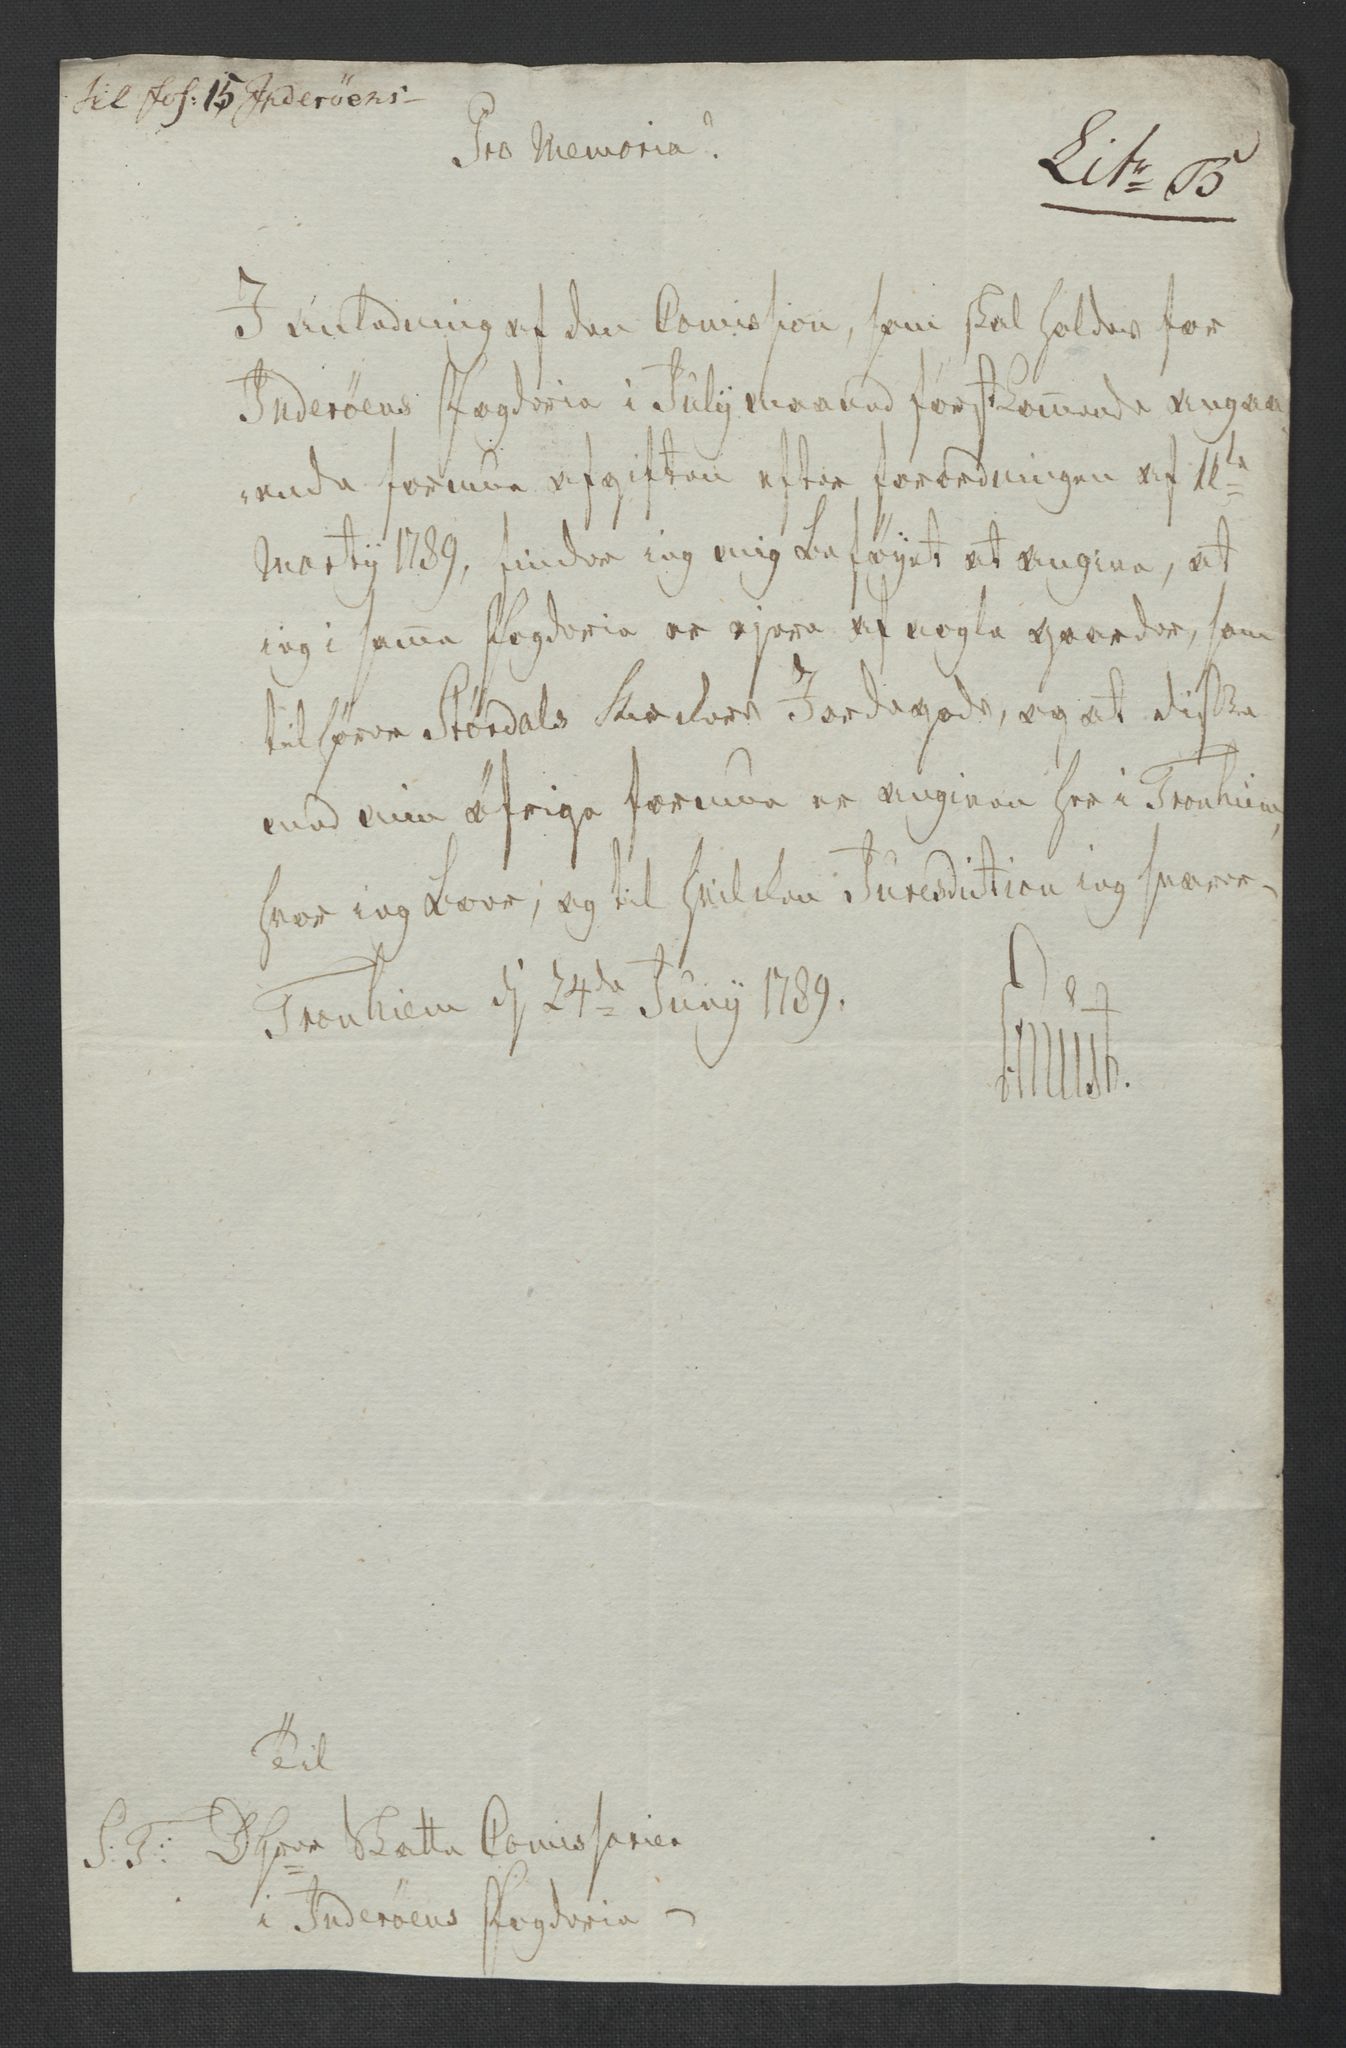 til fol: 15 Inderöens
Pro Memoria.
Litr B
I anledning af den Comission, som skal holdes for
Inderöens Fogderie i July maaned förstkommende angaa
ende formue afgiften efter forordningen af 11te
Marty 1789, finder ieg mig beföyet at angive, at
ieg i samme Fogderie er ejere af nogle gaarder, som
tilhörer Stördals Kirkers Jordegods, og at disse
med min öfrige formue er angiven her i Tronhiem,
hvor ieg boer, og til hvilken Juresdiction ieg svarer
Tronhiem dj 24de Juny 1789.
Til
S: T: DHrer Skatte Comissarier
i Inderöens Fogderie